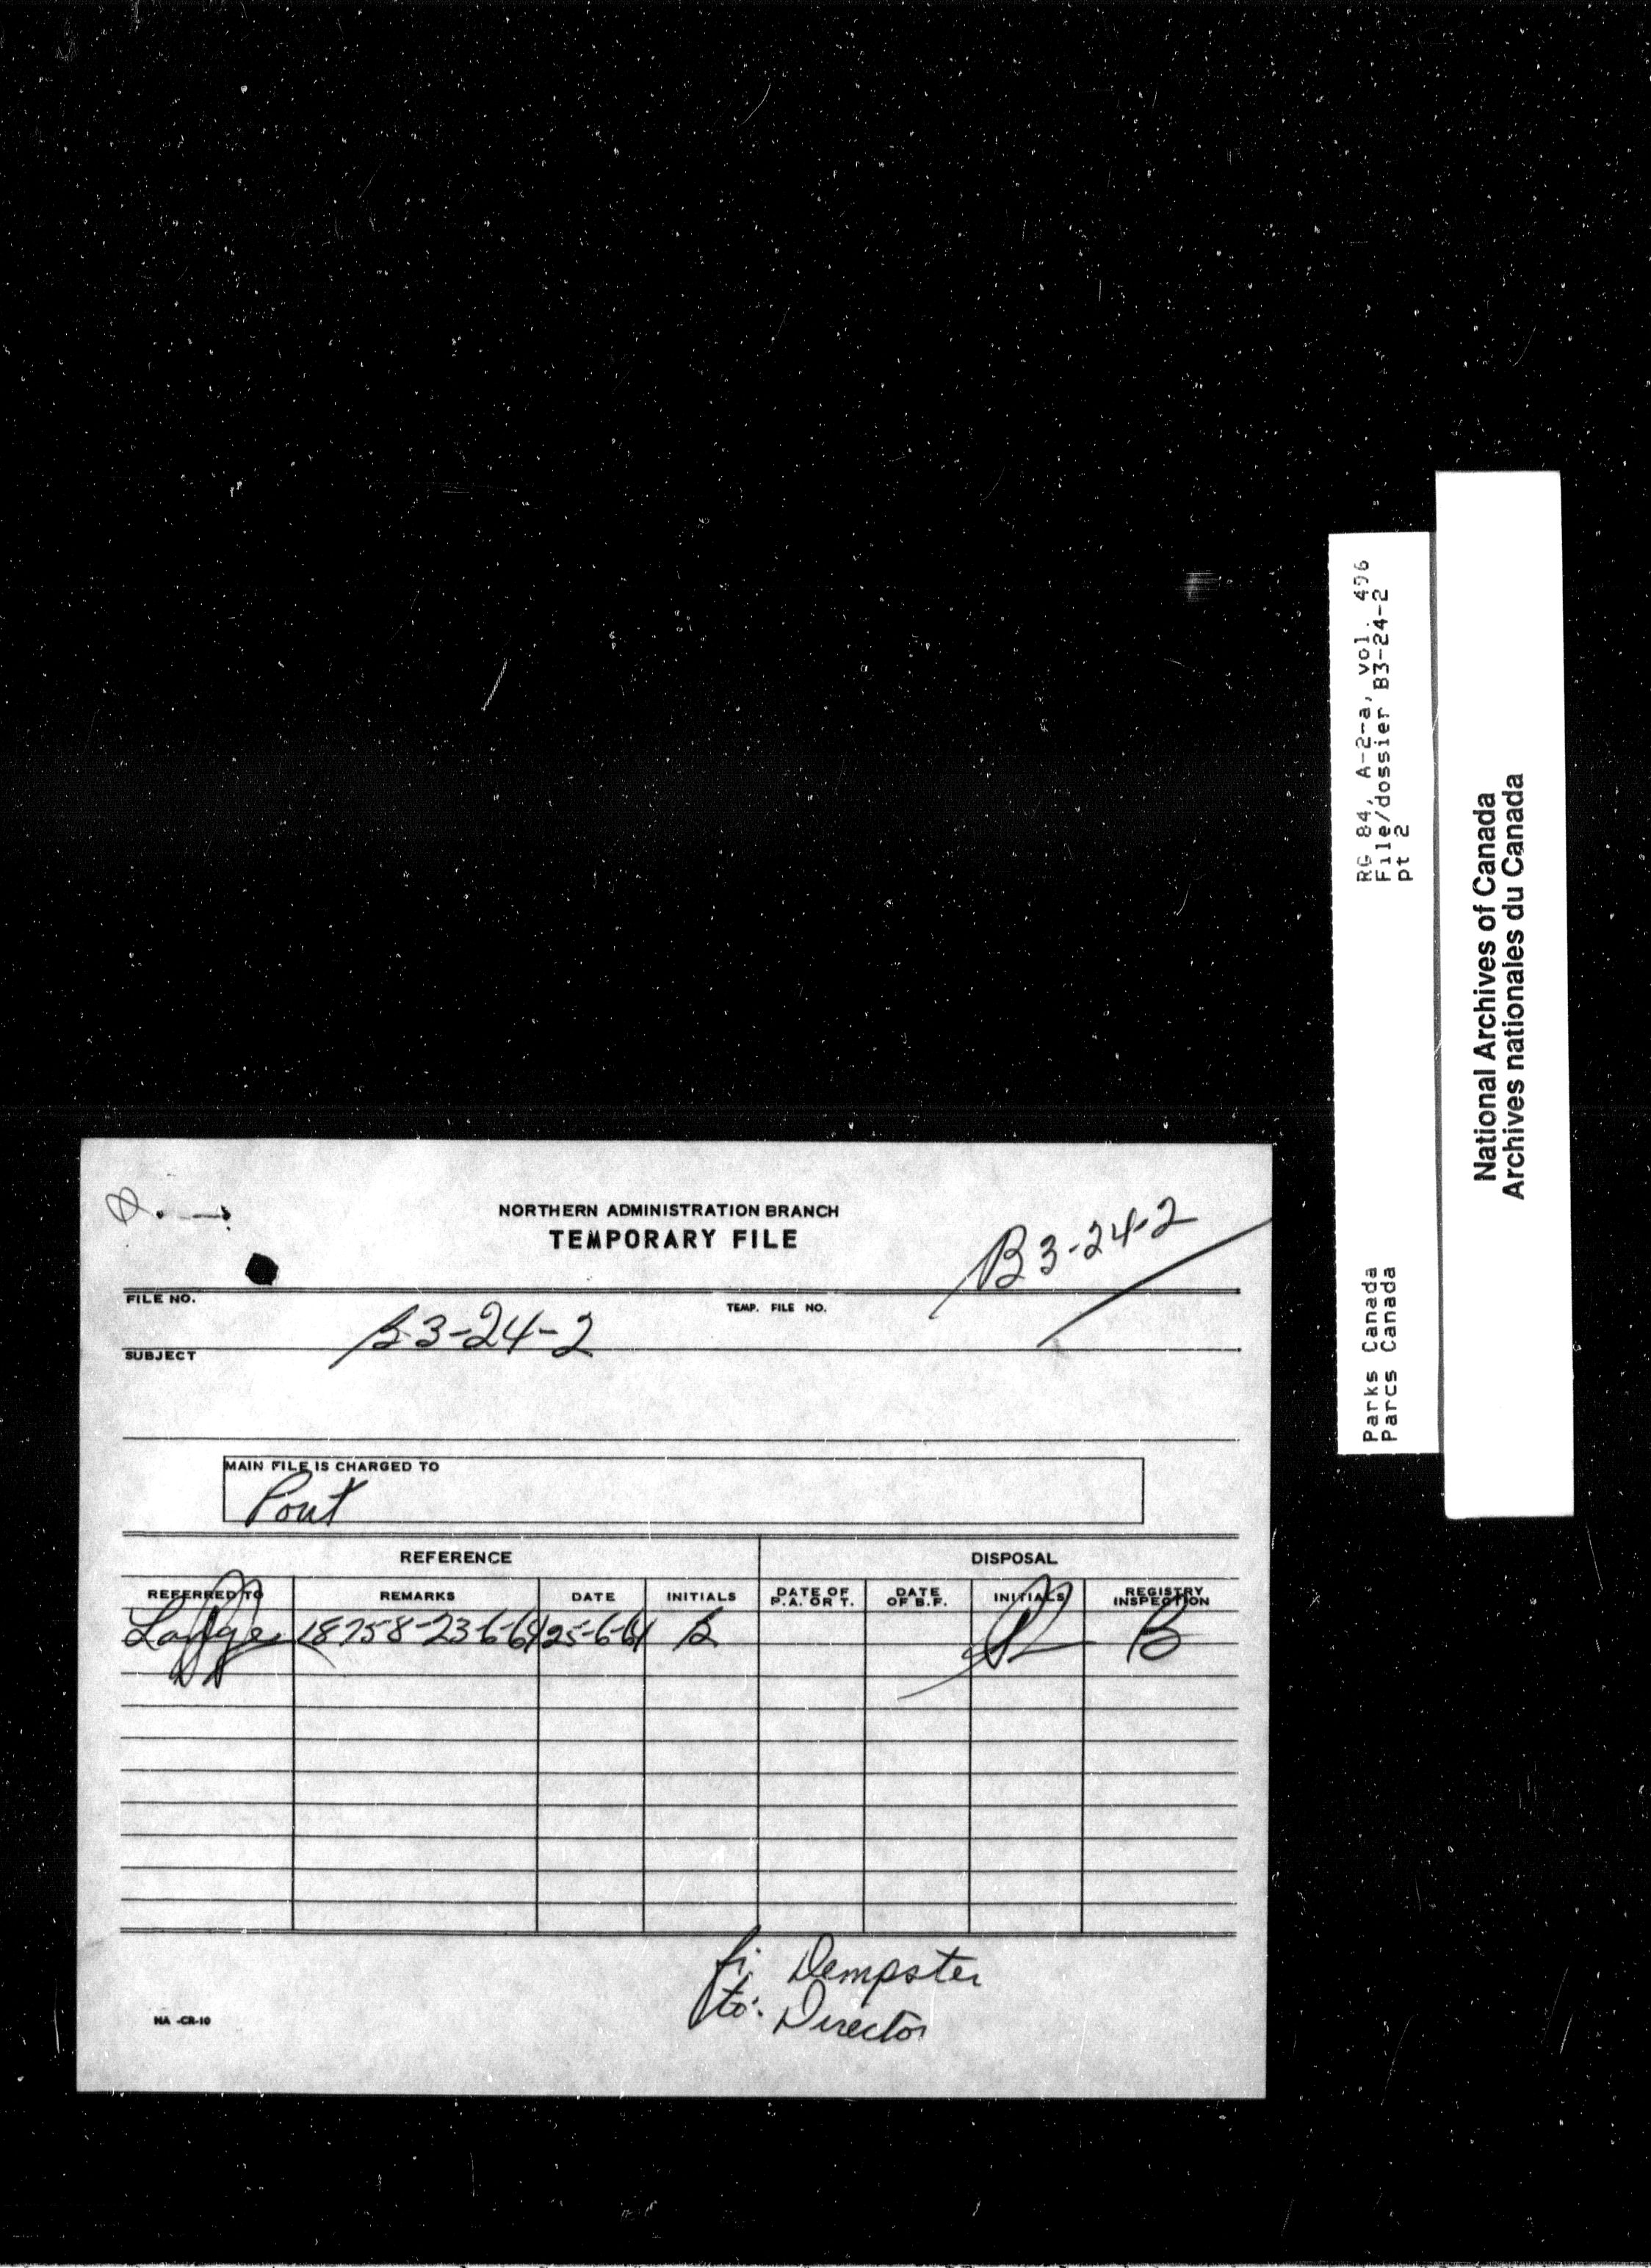 NORTHERN ADMINISTRATION BRANCH
TEMPORARY FILE
B3-24-2
FILE NO.
TEMP. FILE NO.
B3-24-2
SUBJECT
MAIN FILE IS CHARGED TO
Pout
REFERENCE
DISPOSAL
REFERRED TO REMARKS DATE INITIALS DATE OF P.A. OR T. DATE OF B.F. INITIALS REGISTRY INSPECTION
18758-23-6-61 25-6-61 B B
fi. Dempster
to: Director
NA -CR-10
RG 84, A-2-a, vol. 496
File/dossier B3-24-2
pt 2
Parks Canada
Parcs Canada
National Archives of Canada
Archives nationales du Canada